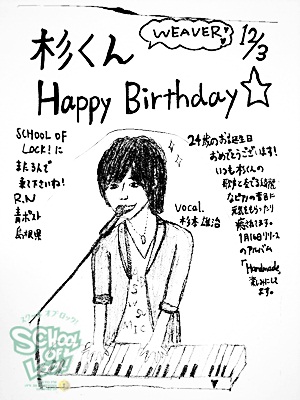 WEAVER
12/3
杉くん
Happy Birthday☆
SCHOOL OF
LOCK!に
また3人で
来て下さいね!
R.N
青ポスト
島根県
24歳のお誕生日
おめでとうございます!
いつも杉くんの
歌声と奏でる綺麗
なピアノの音に
元気をもらったり
癒されてます。
1月16日リリース
のアルバム
「Handmade」
楽しみにして
ます。
vocal.
杉本雄治
SCHOOL OF
LOCK!